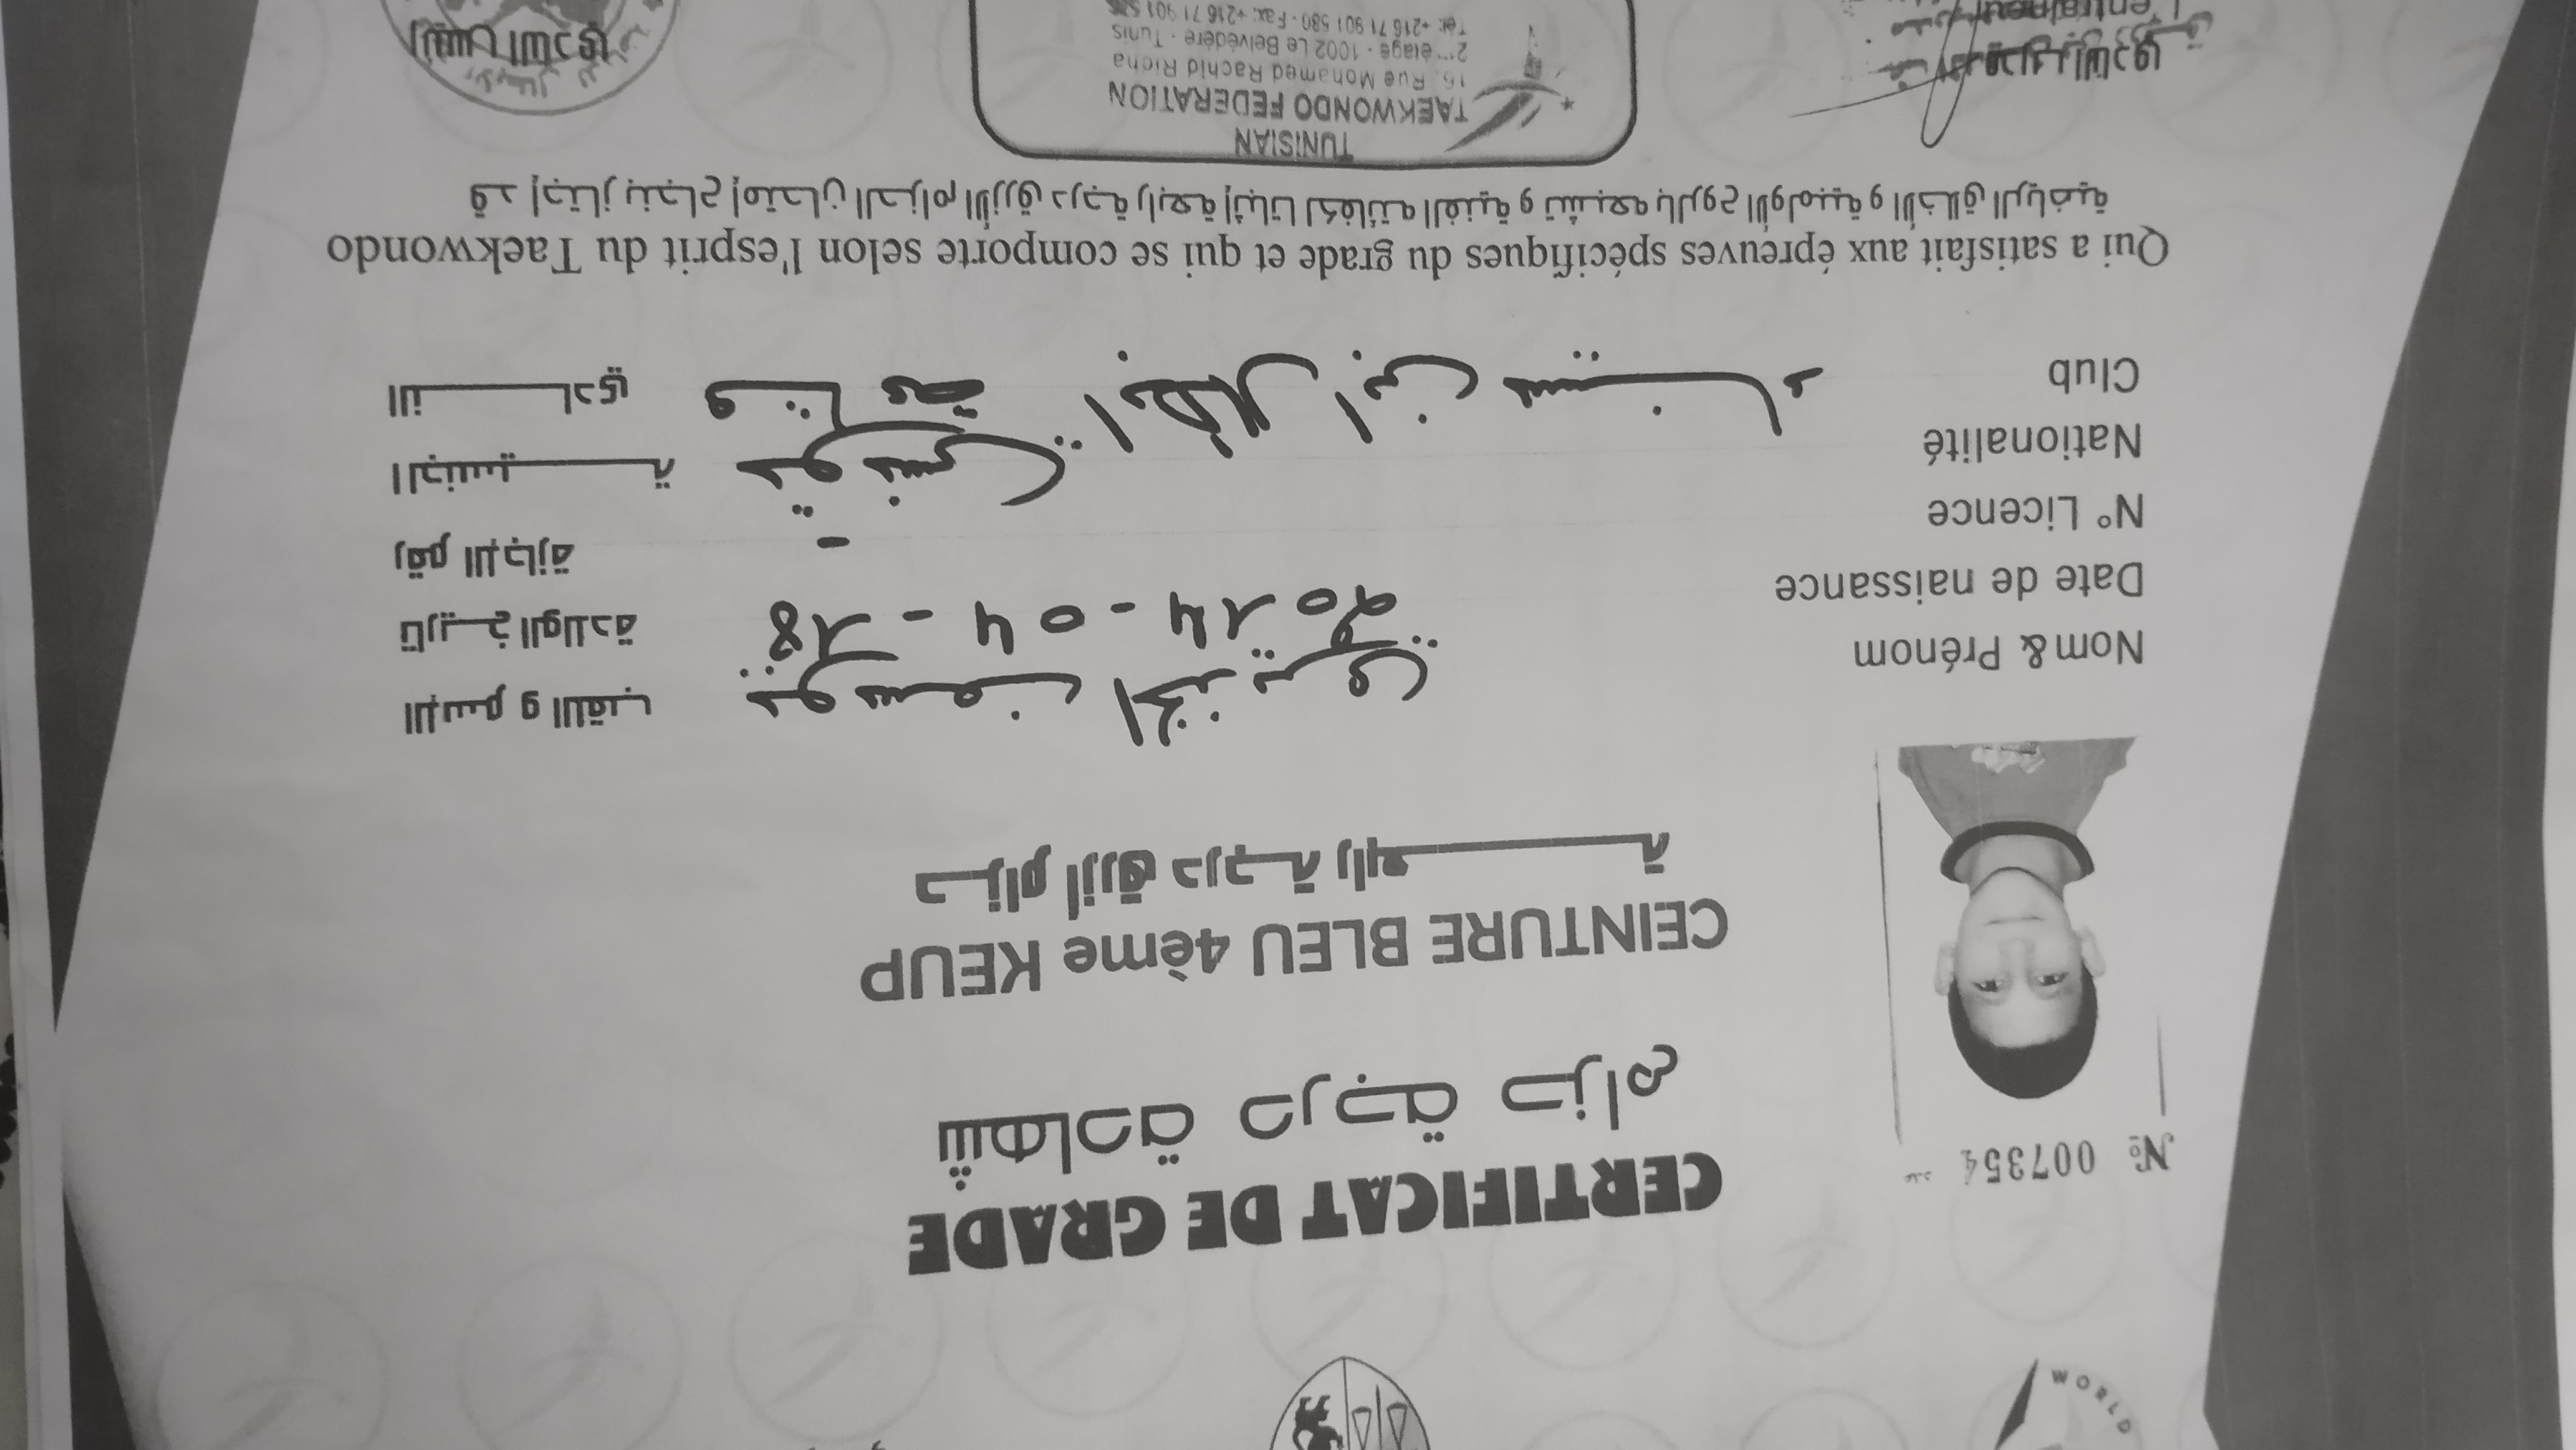 WORLD
CERTIFICAT DE GRADE
شهادة درجة حزام
№ 007354
CEINTURE BLEU 4ème KEUP
حزام أزرق درجة رابعة
Nom & Prénom
الإسم و اللقب
Date de naissance 2014-04-18 تاريخ الولادة
N° Licence - رقم الإجازة
Nationalité تونسية الجنسية
Club النادي
Qui a satisfait aux épreuves spécifiques du grade et qui se comporte selon l'esprit du Taekwondo
قد إجتاز بنجاح إمتحان الحزام الأزرق درجة رابعة إثباتا لكفائته الفنية و تشبعه بالروح الأولمبية و الأخلاق الرياضية
TUNISIAN
TAEKWONDO FEDERATION
16, Rue Mohamed Rachid Ridha
2ème étage - 1002 Le Belvédère - Tunis
Tél: +216 71 901 580 - Fax: +216 71 901 575
L'entraîneur